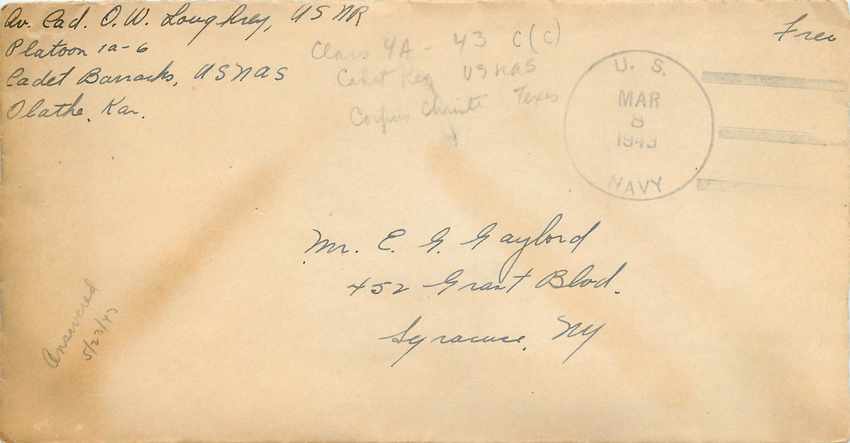 Av. Cad. O. W. Loughrey, USNR
Platoon 1a-6
Cadet Barracks, USNAS
Olathe, Kan.
Free
Class 4A - 43 C(C)
Cadet Reg USNAS
Corpus Christi Texas
U. S.
MAR
8
1943
NAVY
Mr. E. G. Gaylord
452 Grant Blvd.
Syracuse, NY
Answered
5/23/43